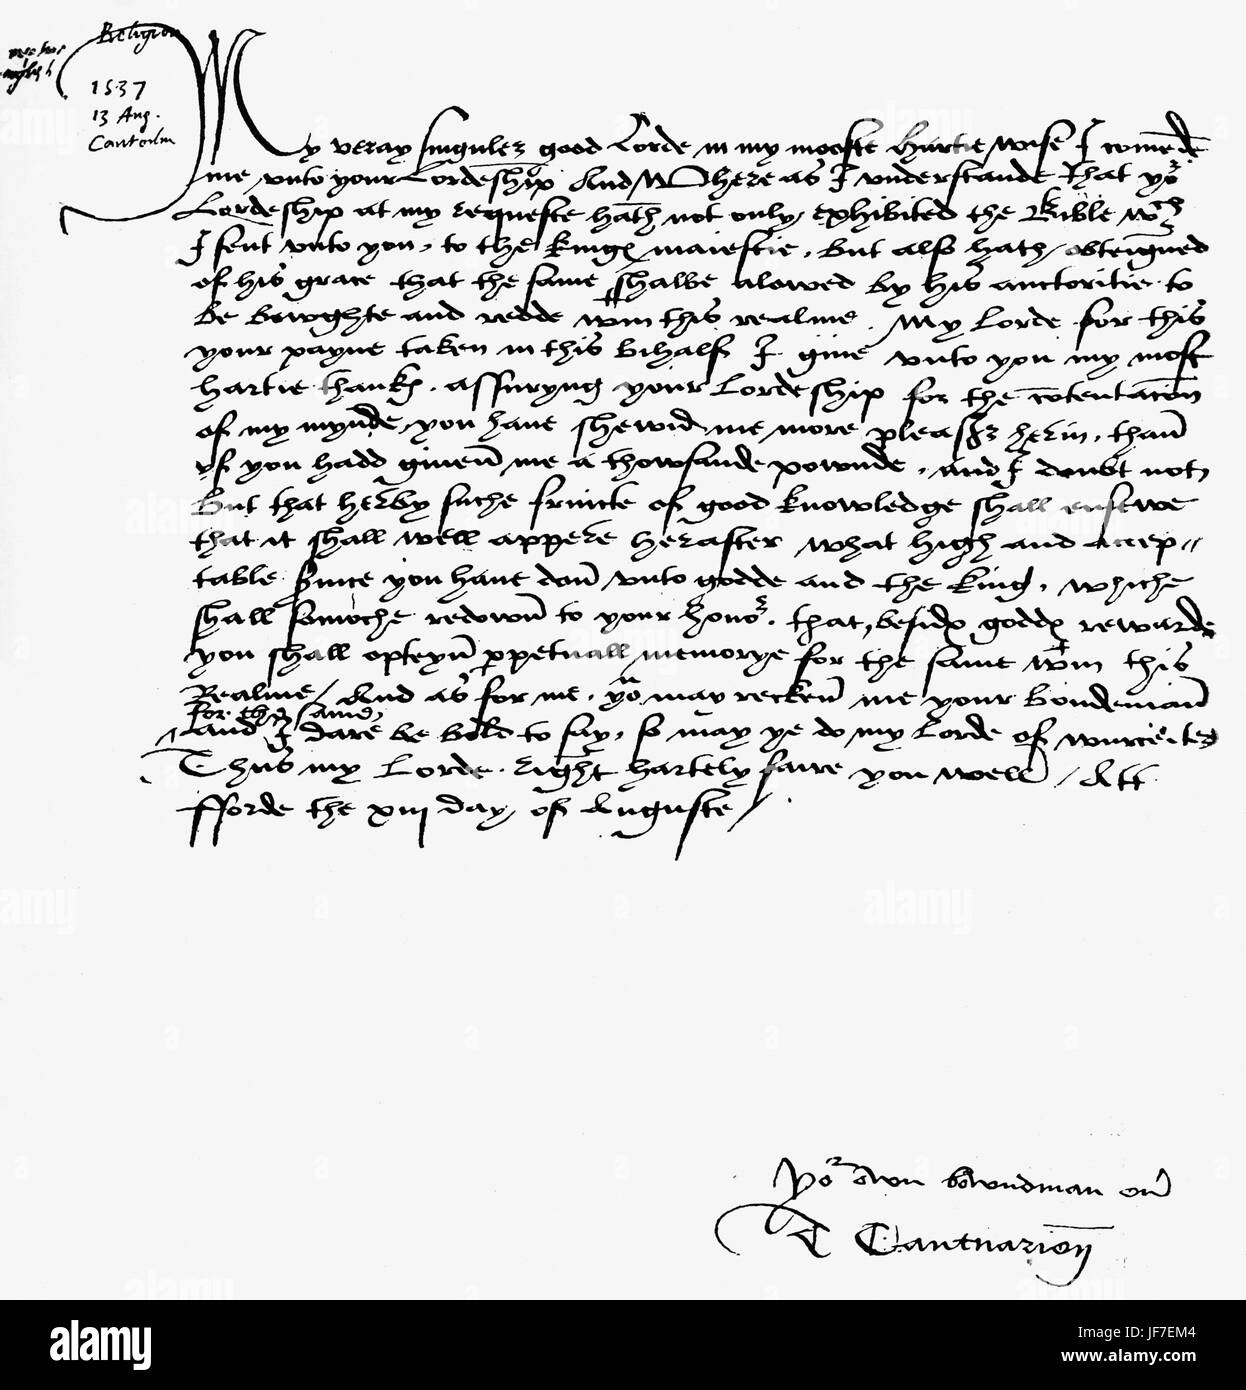 Religion
1537
13 Aug.
My veray singuler good Lorde in my mooste hartie wise I comēde
me vnto your Lordeship And Where as I vnderstande that yor
Lordeship at my requeste hath not only exhibited the Bible wch
I sent vnto you, to the kingꝭ maiestie, but also hath obteigned
of his grace that the same shalbe alowed by his auctoritie to
be bowghte and redde wtin this realme. My lorde for this
your payne taken in this bihalf I give vnto you my most
hartie thankꝭ. assuryng your Lordeship for the cōtentacōn
of my mynde, you have shewid me more pleasr herin, than
yf you hadd given me a thowsande pownde, and I doubt not,
But that herby suche fruicte of good knowledge shall ensewe
that it shall well appere herafter what high and accep〃
table sruice you have don vnto godde and the king, whiche
shall somoche redown to your honor. that, besidꝭ goddꝭ rewarde
you shall opteyn ꝑpetuall memorye for the same wtin this
Realme / And as for me. you may recken me your bondeman
for the same,
And I dare be bold to say, so may ye do my Lorde of wurceter
Thus my Lorde. right hartely faire you well / Att
fforde the xiij day of Auguste /
Yor own bowndman ever
T Cantuarien
alamy
Image ID: JF7EM4
www.alamy.com